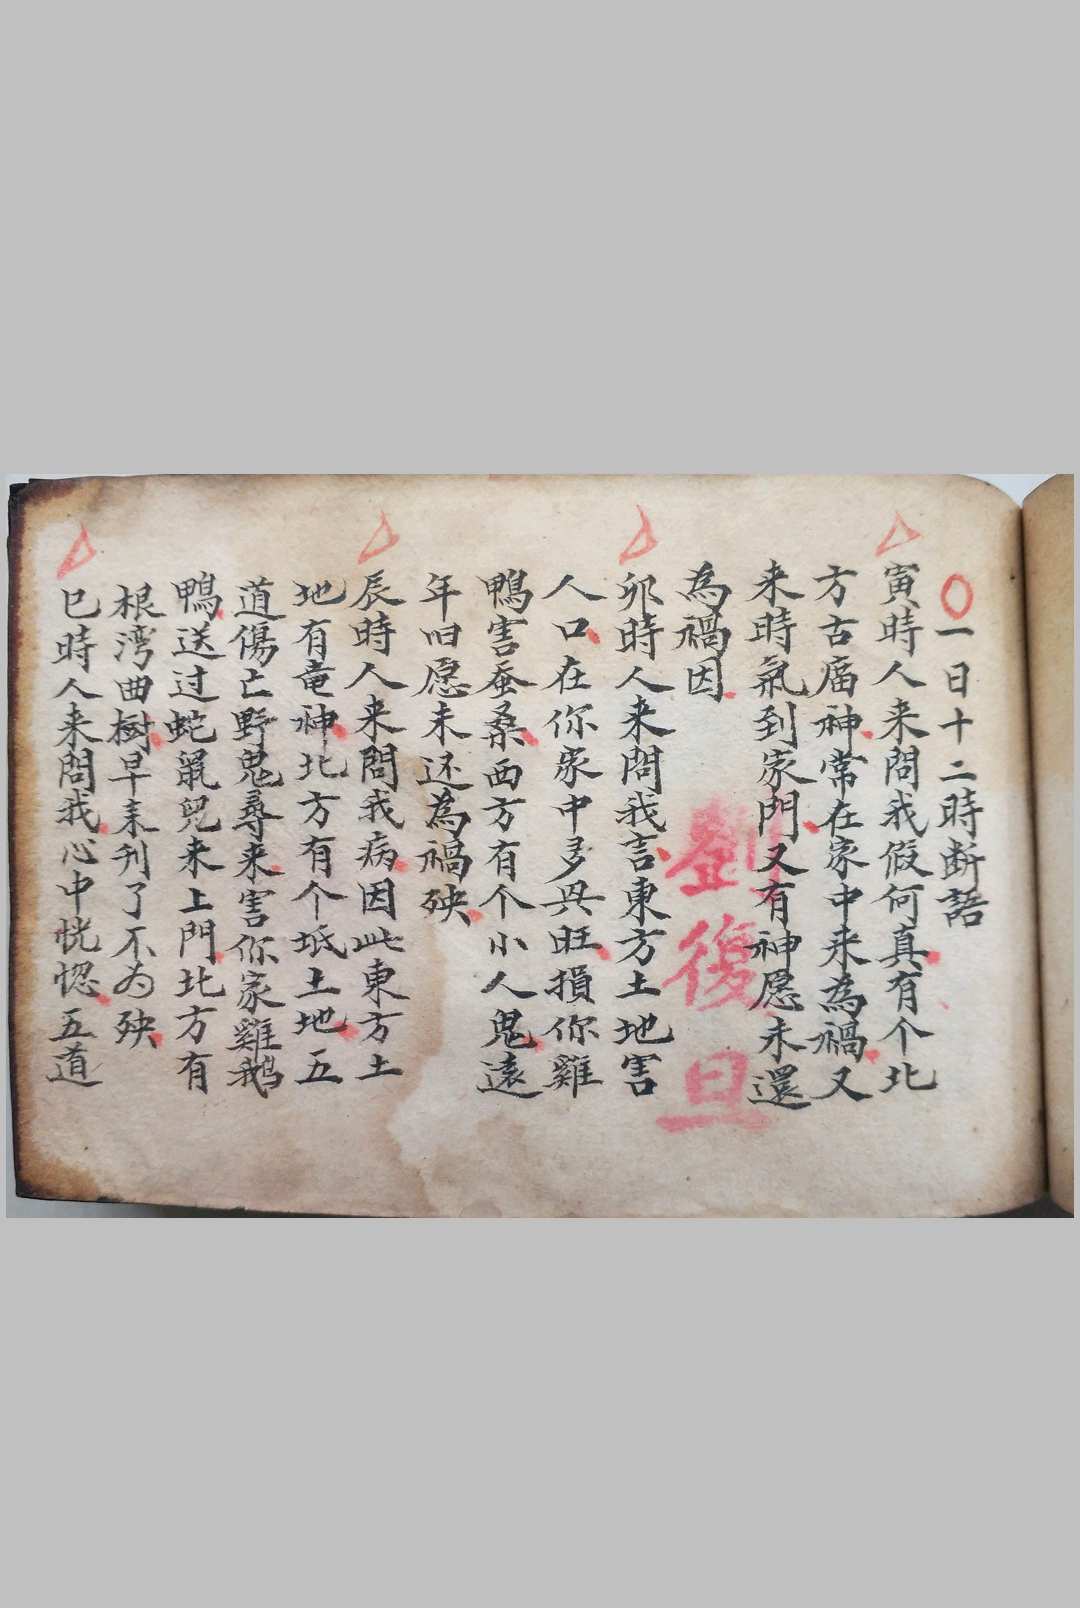 一日十二時断語
寅時人来問我假何真有个北
方古庙神常在家中来為禍又
来時氣到家門又有神愿未還
為禍因
劉復旦
卯時人来問我言東方土地害
人口在你家中多興旺損你雞
鴨害蚕桑西方有个小人鬼遠
年旧愿未还為禍殃
辰時人来問我病因此東方土
地有竜神北方有个坻土地五
道傷亡野鬼尋来害你家雞鵝
鴨送过蛇鼠兒来上門北方有
根湾曲樹早来刋了不为殃
巳時人来問我心中恍惚五道